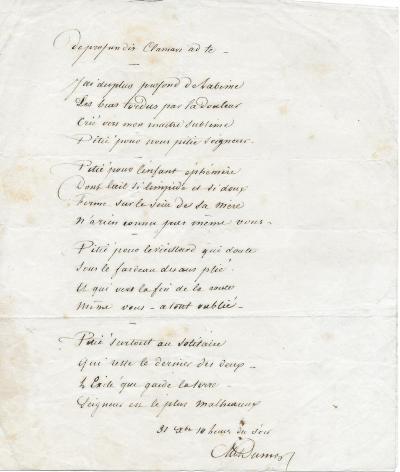 De profundis Clamavi ad te -
J'ai du plus profond de l'abime
Les bras tordus par la douleur
Crié vers mon maitre sublime
Pitié pour nous pitié Seigneur.
Pitié pour l'enfant éphémère
Dont l'œil si limpide et si doux
Fermé sur le sein de sa mère
N'a rien connu pas même vous -
Pitié pour le vieillard qui doute
Sous le fardeau des ans plié.
Et qui vers la fin de la route
Même vous - a tout oublié -
Pitié surtout au solitaire
Qui reste le dernier des deux -
L'Exilé que garde la terre
Seigneur est le plus malheureux
31 Xbre 10 heures du soir
Alex Dumas